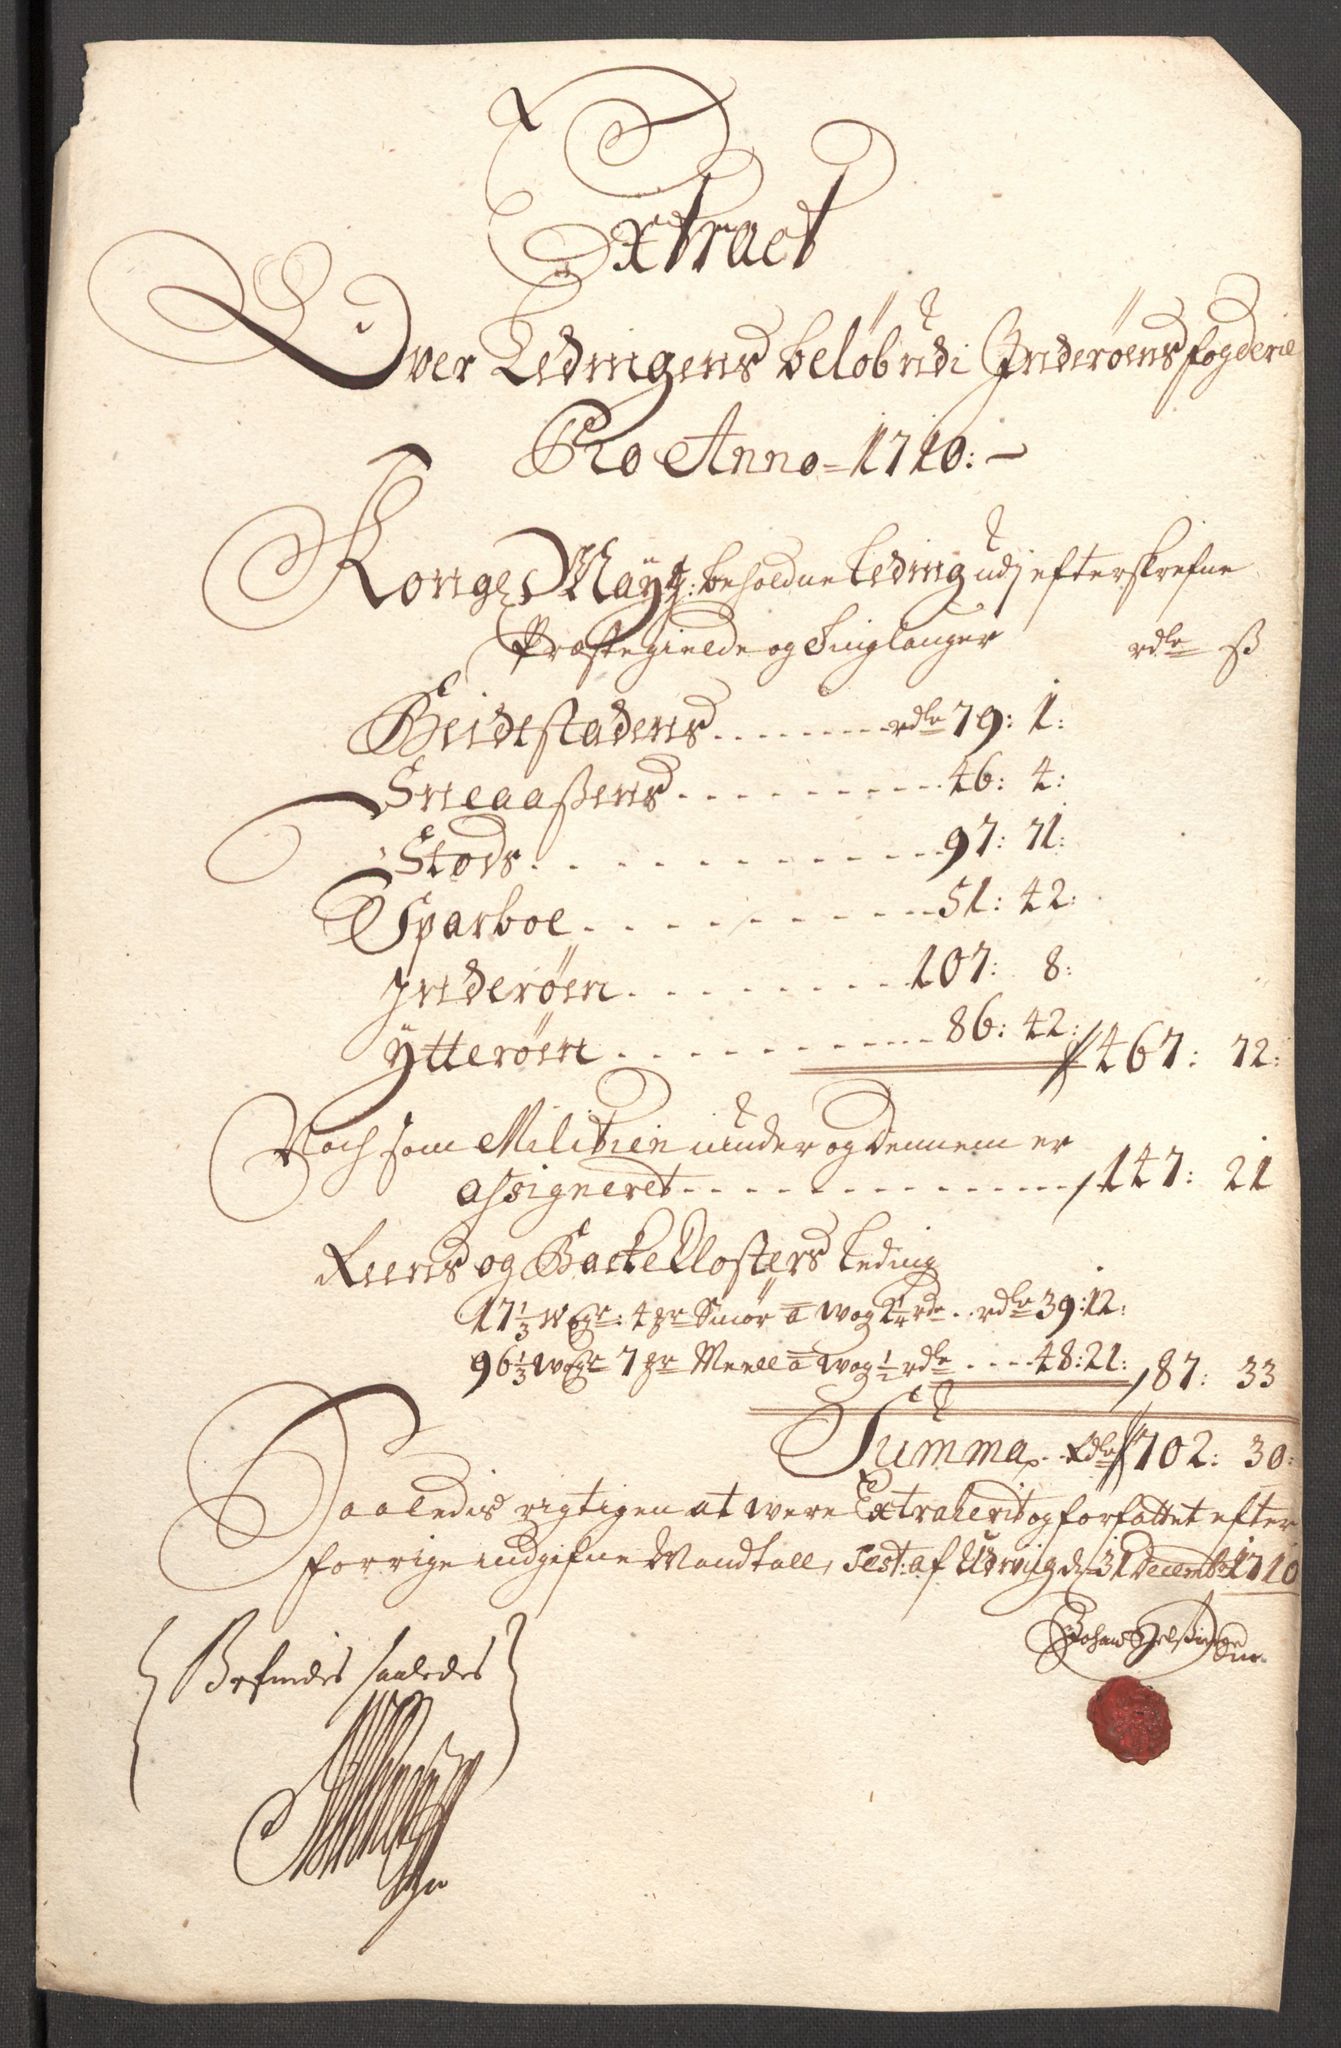 Extract
Over Ledingens beløb udi Inderøens fogderie
Pro Anno 1710:
Kongl Mayts: beholdne Leding udj efterskrefne
Præstegielde og Tinglauger rdlr ß
Beidtstadens . . . . . rdlr 79: 1:
Sneaaßens . . . . . 46: 4:
Stods . . . . . 97: 71:
Sparboe . . . . . 51: 42:
Inderøen . . . . . 107: 8:
Ytterøen . . . . . 86: 42: 467: 72:
Noch som Militzien under og dennem er
assigneret . . . . . 147: 21
Reens og Backe Closters Leding
17 1/3 wogr: 4 pr Smør a wog 2 1/4 rdr . . rdlr 39: 12:
96 1/3 wogr 7 pr Meell a wog 1/2 rdlr . . . . 48: 21: 87: 33
Summa . . Rdlr 702: 30:
Saaledis rigtigen at were Extraherit og forfattet efter
forrige indgifne Mandtall, Test: af Udviig d: 31 Decembr 1710
Befindes saaledes